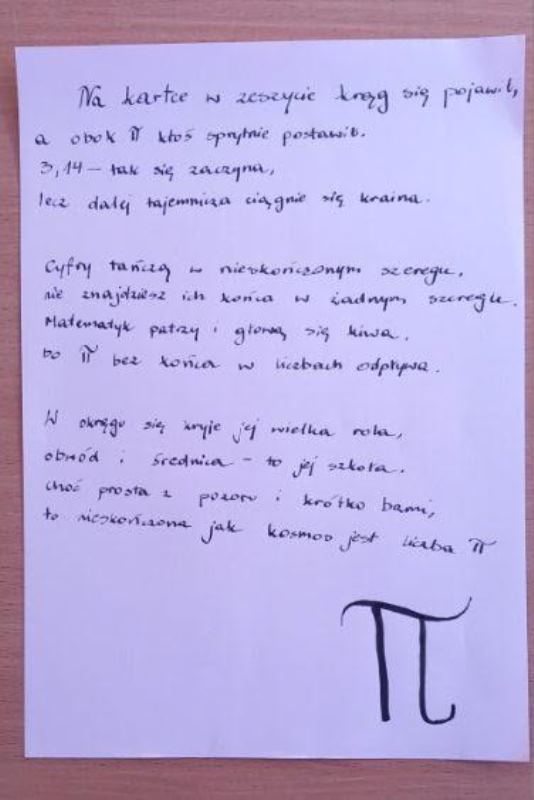 Na kartce w zeszycie krąg się pojawił,
a obok π ktoś sprytnie postawił.
3,14 – tak się zaczyna,
lecz dalej tajemnicza ciągnie się kraina.
Cyfry tańczą w nieskończonym szeregu,
nie znajdziesz ich końca w żadnym szeregu.
Matematyk patrzy i głową się kiwa,
bo π bez końca w liczbach odpływa.
W okręgu się kryje jej wielka rola,
obwód i średnica – to jej szkoła.
Choć prosta z pozoru i krótko bami,
to nieskończona jak kosmos jest liczba π
π